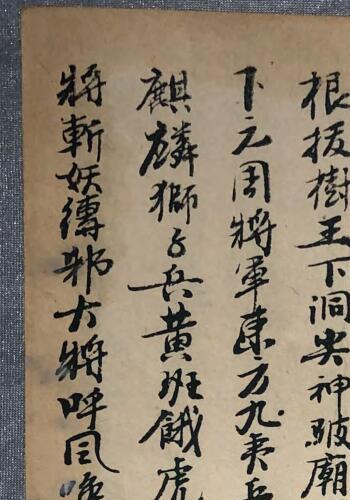 根拔樹王下洞尖神破廟
下元周將軍東方九夷兵
麒麟獅子兵黃班餓虎
將斬妖縛邪大將呼風喚